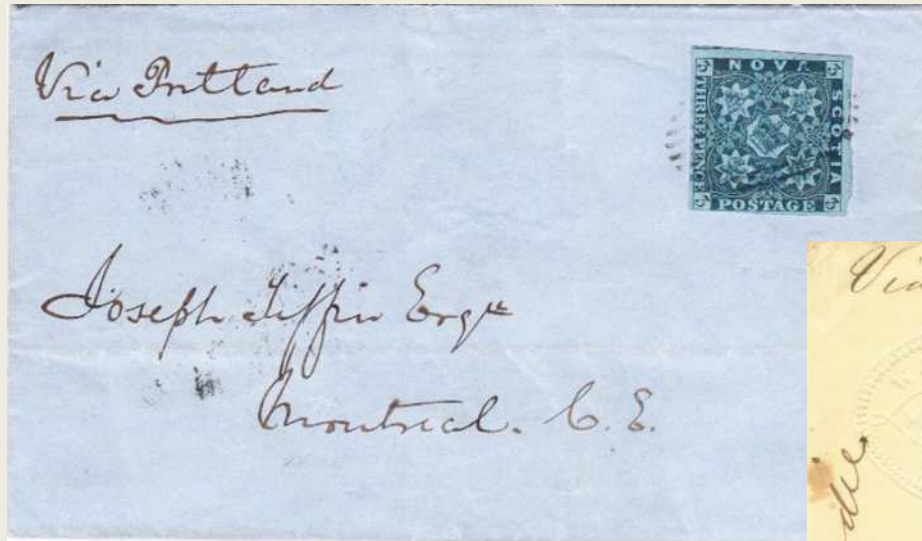 Via Portland
NOVA SCOTIA
THREE PENCE
POSTAGE
Joseph Tiffin Esqre
Montreal. C.E.
Via